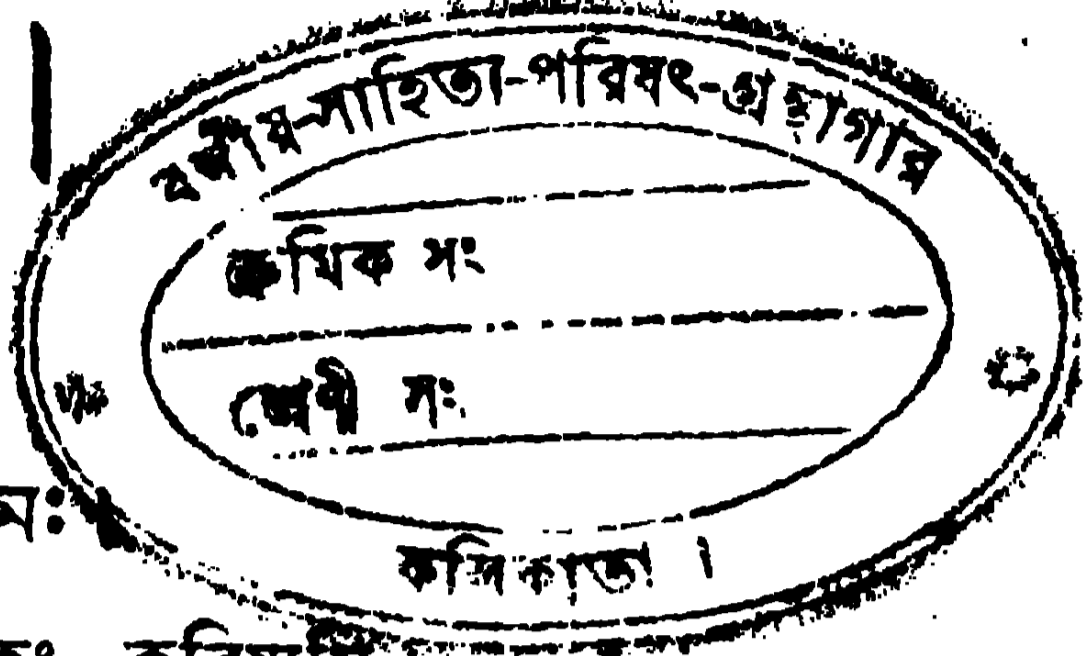 বঙ্গীয়-সাহিত্য-পরিষৎ-গ্রন্থাগার
ক্রমিক সং
শ্রেণী সং
মঃ
কলিকাতা ।